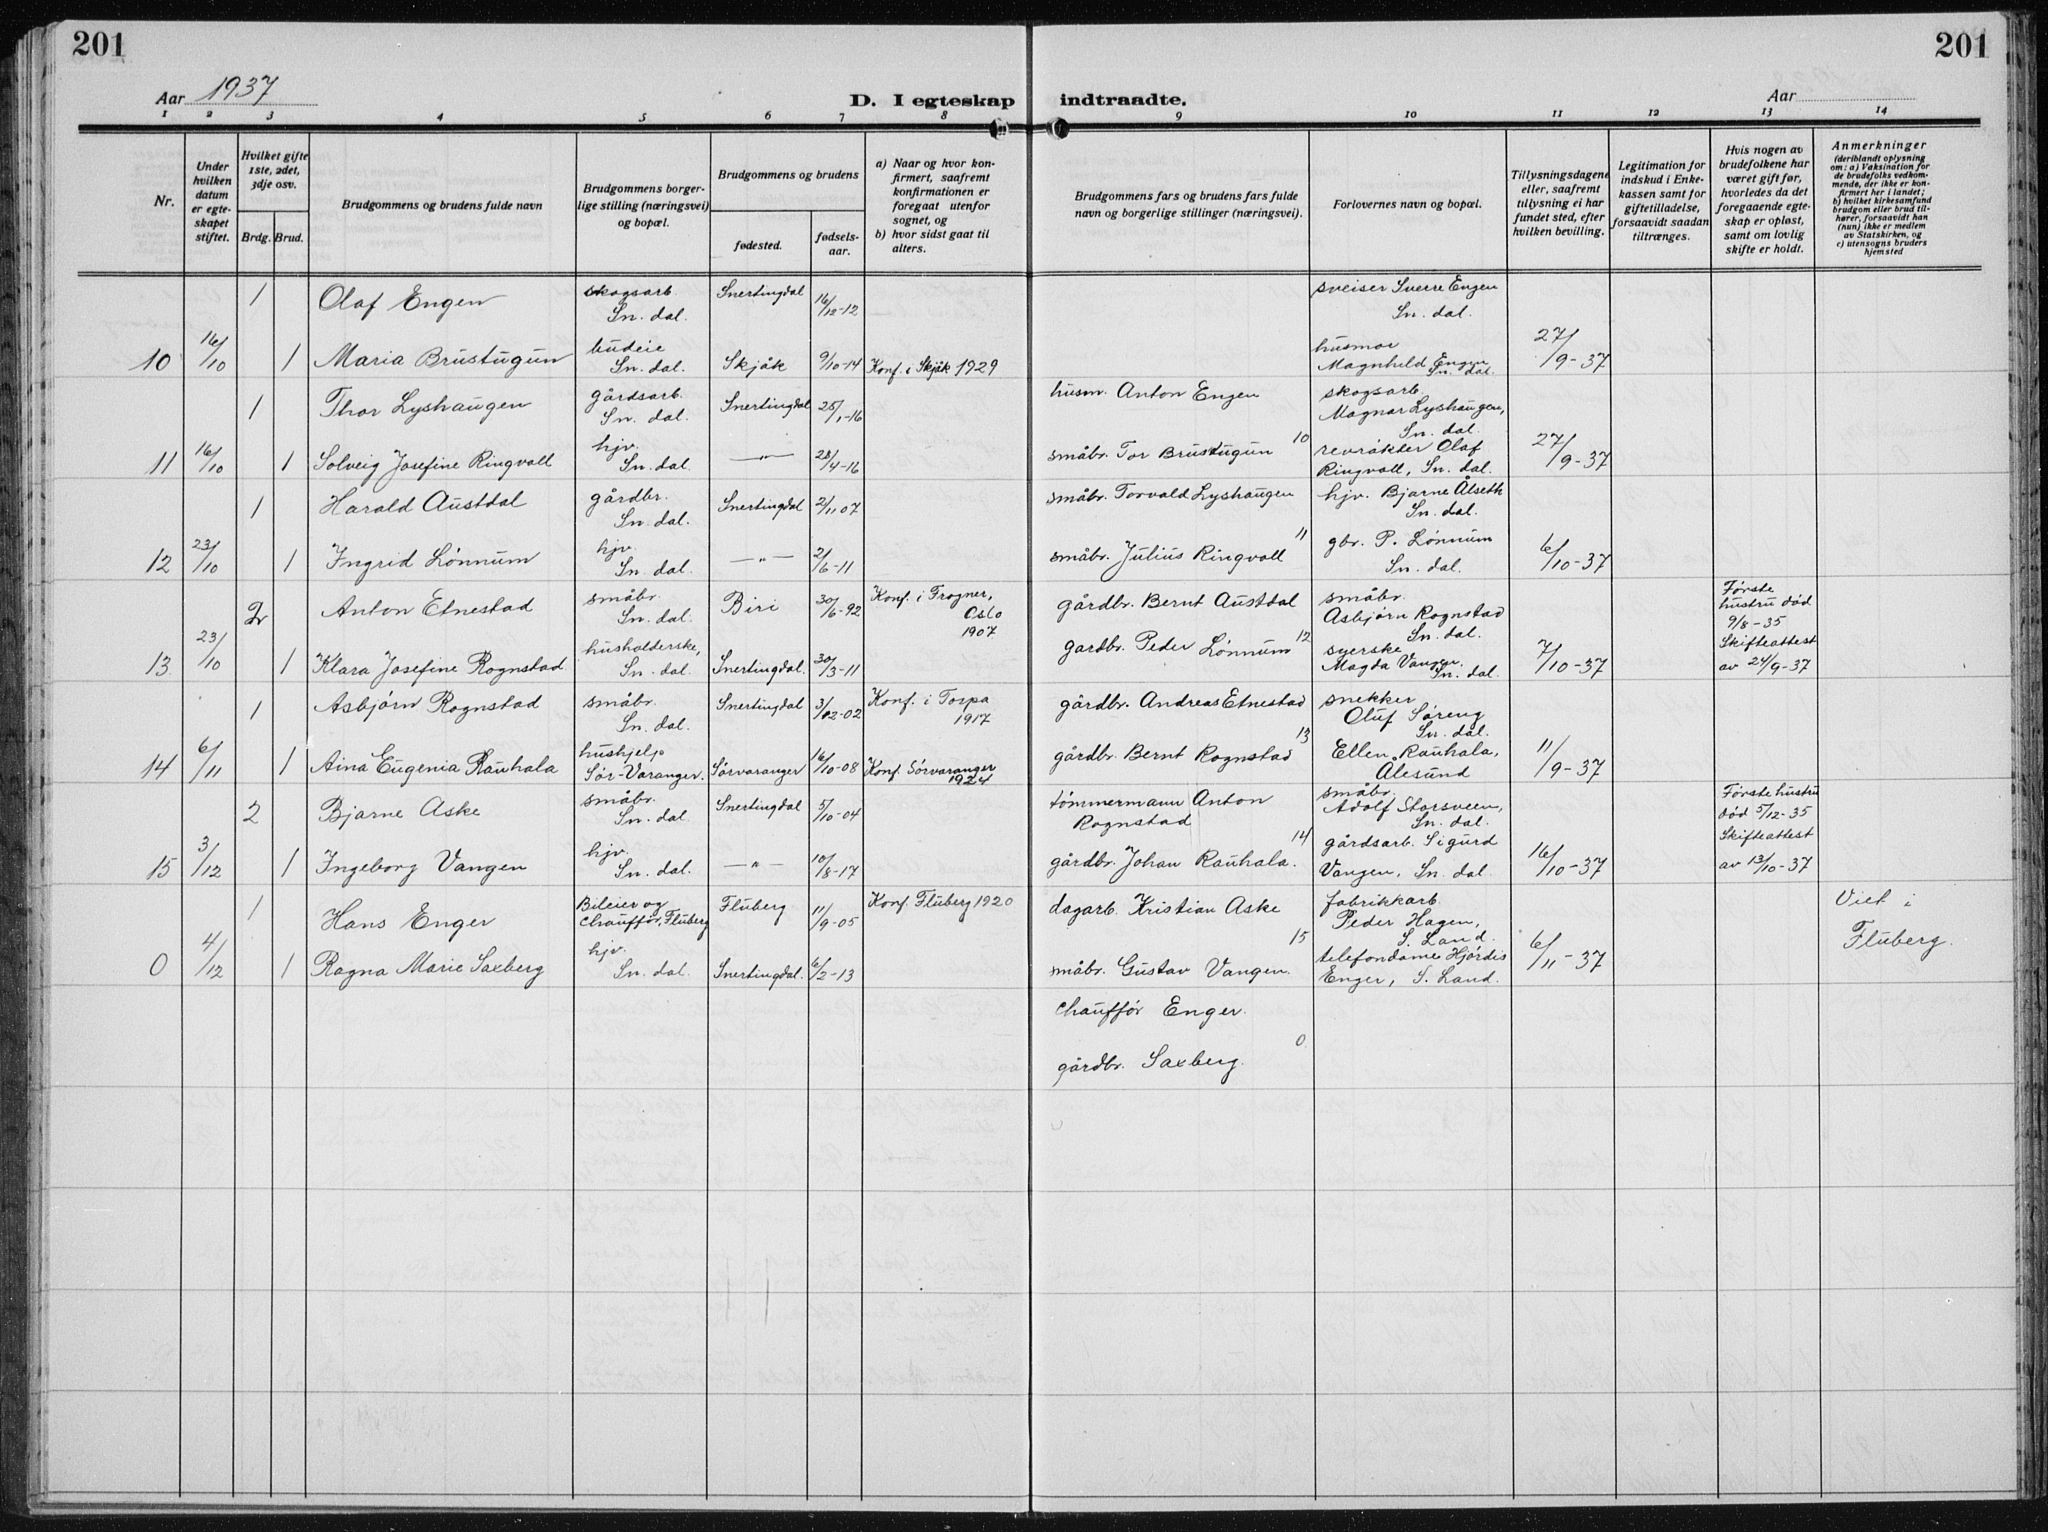 201
201
Aar 1937
D. I egteskap
indtraadte.
Aar
1
2
3
4
5
6
7
8
9
10
11
12
13
14
Nr.
Under
hvilken
datum
er egte-
skapet
stiftet.
Hvilket gifte
1ste, 2det,
3dje osv.
Brdg.
Brud.
Brudgommens og brudens fulde navn
Brudgommens borger-
lige stilling (næringsvei)
og bopæl.
Brudgommens og brudens
fødested.
fødsels-
aar.
a) Naar og hvor kon-
firmert, saafremt
konfirmationen er
foregaat utenfor
sognet, og
b) hvor sidst gaat til
alters.
Brudgommens fars og brudens fars fulde
navn og borgerlige stillinger (næringsvei).
Forlovernes navn og bopæl.
Tillysningsdagene
eller, saafremt
tillysning ei har
fundet sted, efter
hvilken bevilling.
Legitimation for
indskud i Enke-
kassen samt for
giftetilladelse,
forsaavidt saadan
tiltrænges.
Hvis nogen av
brudefolkene har
været gift før,
hvorledes da det
foregaaende egte-
skap er opløst,
samt om lovlig
skifte er holdt.
Anmerkninger
(deriblandt oplysning
om: a) Vaksination for
de brudefolks vedkom-
mende, der ikke er kon-
firmert her i landet;
b) hvilket kirkesamfund
brudgom eller brud til-
hører, forsaavidt han
(hun) ikke er medlem
av Statskirken, og
c) utensogns bruders
hjemsted
1
Olaf Engen
skogsarb.
Sn. dal.
Snertingdal
16/12-12
sveiser Sverre Engen
Sn. dal.
10
16/10
1
Maria Brustugun
budeie
Sn. dal.
Skjåk
9/10-14
Konf. i Skjåk 1929
husmor
Magnhild Engen
Sn. dal.
27/9-37
1
Thor Lyshaugen
gårdsarb.
Sn. dal.
Snertingdal
25/1-16
husm. Anton Engen
skogsarb.
Magnar Lyshaugen,
Sn. dal.
11
16/10
1
Solveig Josefine Ringvoll
hjv.
Sn. dal.
—"—
28/4-16
småbr. Tor Brustugun
10
revrøkter Olaf
Ringvoll, Sn. dal.
27/9-37
1
Harald Austdal
gårdbr.
Sn. dal.
Snertingdal
2/11 07
småbr. Torvald Lyshaugen
hjv. Bjarne Ålseth
Sn. dal.
12
23/10
1
Ingrid Lønnum
hjv.
Sn. dal.
—"—
2/6-11
småbr. Julius Ringvoll
11
gbr. P. Lønnum
Sn. dal.
6/10-37
2
Anton Etnestad
småbr.
Sn. dal.
Biri
30/6-92
Konf. i Frogner,
Oslo
1907
gårdbr. Bernt Austdal
småbr.
Asbjørn Rognstad
Sn. dal.
Første
hustru død
9/8-35
13
23/10
1
Klara Josefine Rognstad
husholderske,
Sn. dal.
Snertingdal.
30/3-11
gardbr. Peder Lønnum
12
syerske
Magda Vangen.
Sn. dal.
7/10-37
Skifteattest
av 24/9-37
1
Asbjørn Rognstad
småbr.
Sn. dal.
Snertingdal
3/12-02
Konf. i Torpa
1917
gårdbr. Andreas Etnestad
snekker
Oluf Søreng
Sn. dal.
14
6/11
1
Aina Eugenia Rauhala
hushjelp
Sør-Varanger.
Sørvaranger
16/10-08
Konf. Sørvaranger
1924
gårdbr. Bernt Rognstad
13
Ellen Rauhala,
Ålesund
11/9-37
2
Bjarne Aske
småbr.
Sn. dal.
Snertingdal
5/10-04
tømmermann Anton
Rognstad
småbr.
Adolf Storsveen,
Sn. dal.
Første hustru
død 5/12-35
15
3/12
1
Ingeborg Vangen
hjv.
Sn. dal.
—"—
10/8-17
gårdbr. Johan Rauhala.
14
gårdsarb. Sigurd
Vangen, Sn. dal.
16/10-37
Skifteattest
av 13/10-37
1
Hans Enger
Bileier og
chauffør, Fluberg
Fluberg
11/9-05
Konf. Fluberg 1920
dagarb. Kristian Aske
fabrikkarb.
Peder Hagen,
S. Land.
Viet i
Fluberg.
0
4/12
1
Ragna Marie Saxberg
hjv.
Sn. dal.
Snertingdal.
6/2-13
småbr. Gustav Vangen.
15
telefondame Hjørdis
Enger, S. Land.
6/11-37
chauffør Enger.
gårdbr. Saxberg.
0